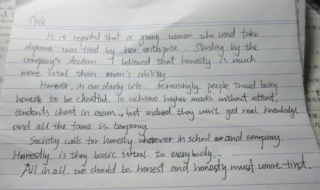 It is reported that a young woman who used fake
diploma was fired by her enterprise. Standing by the
company's decision, I believed that honesty is much
more vital than man's ability.
However, in our daily life, increasingly, people tread being
honest to be cheatful. To achieve higher marks without effort,
students cheat in exam, but indeed they won't get real knowledge
and all the fame is temporary.
Society calls for honesty, wherever in school or and company.
Honestly is they basic virtual to everybody.
All in all, we should be honest and honesty must come first.